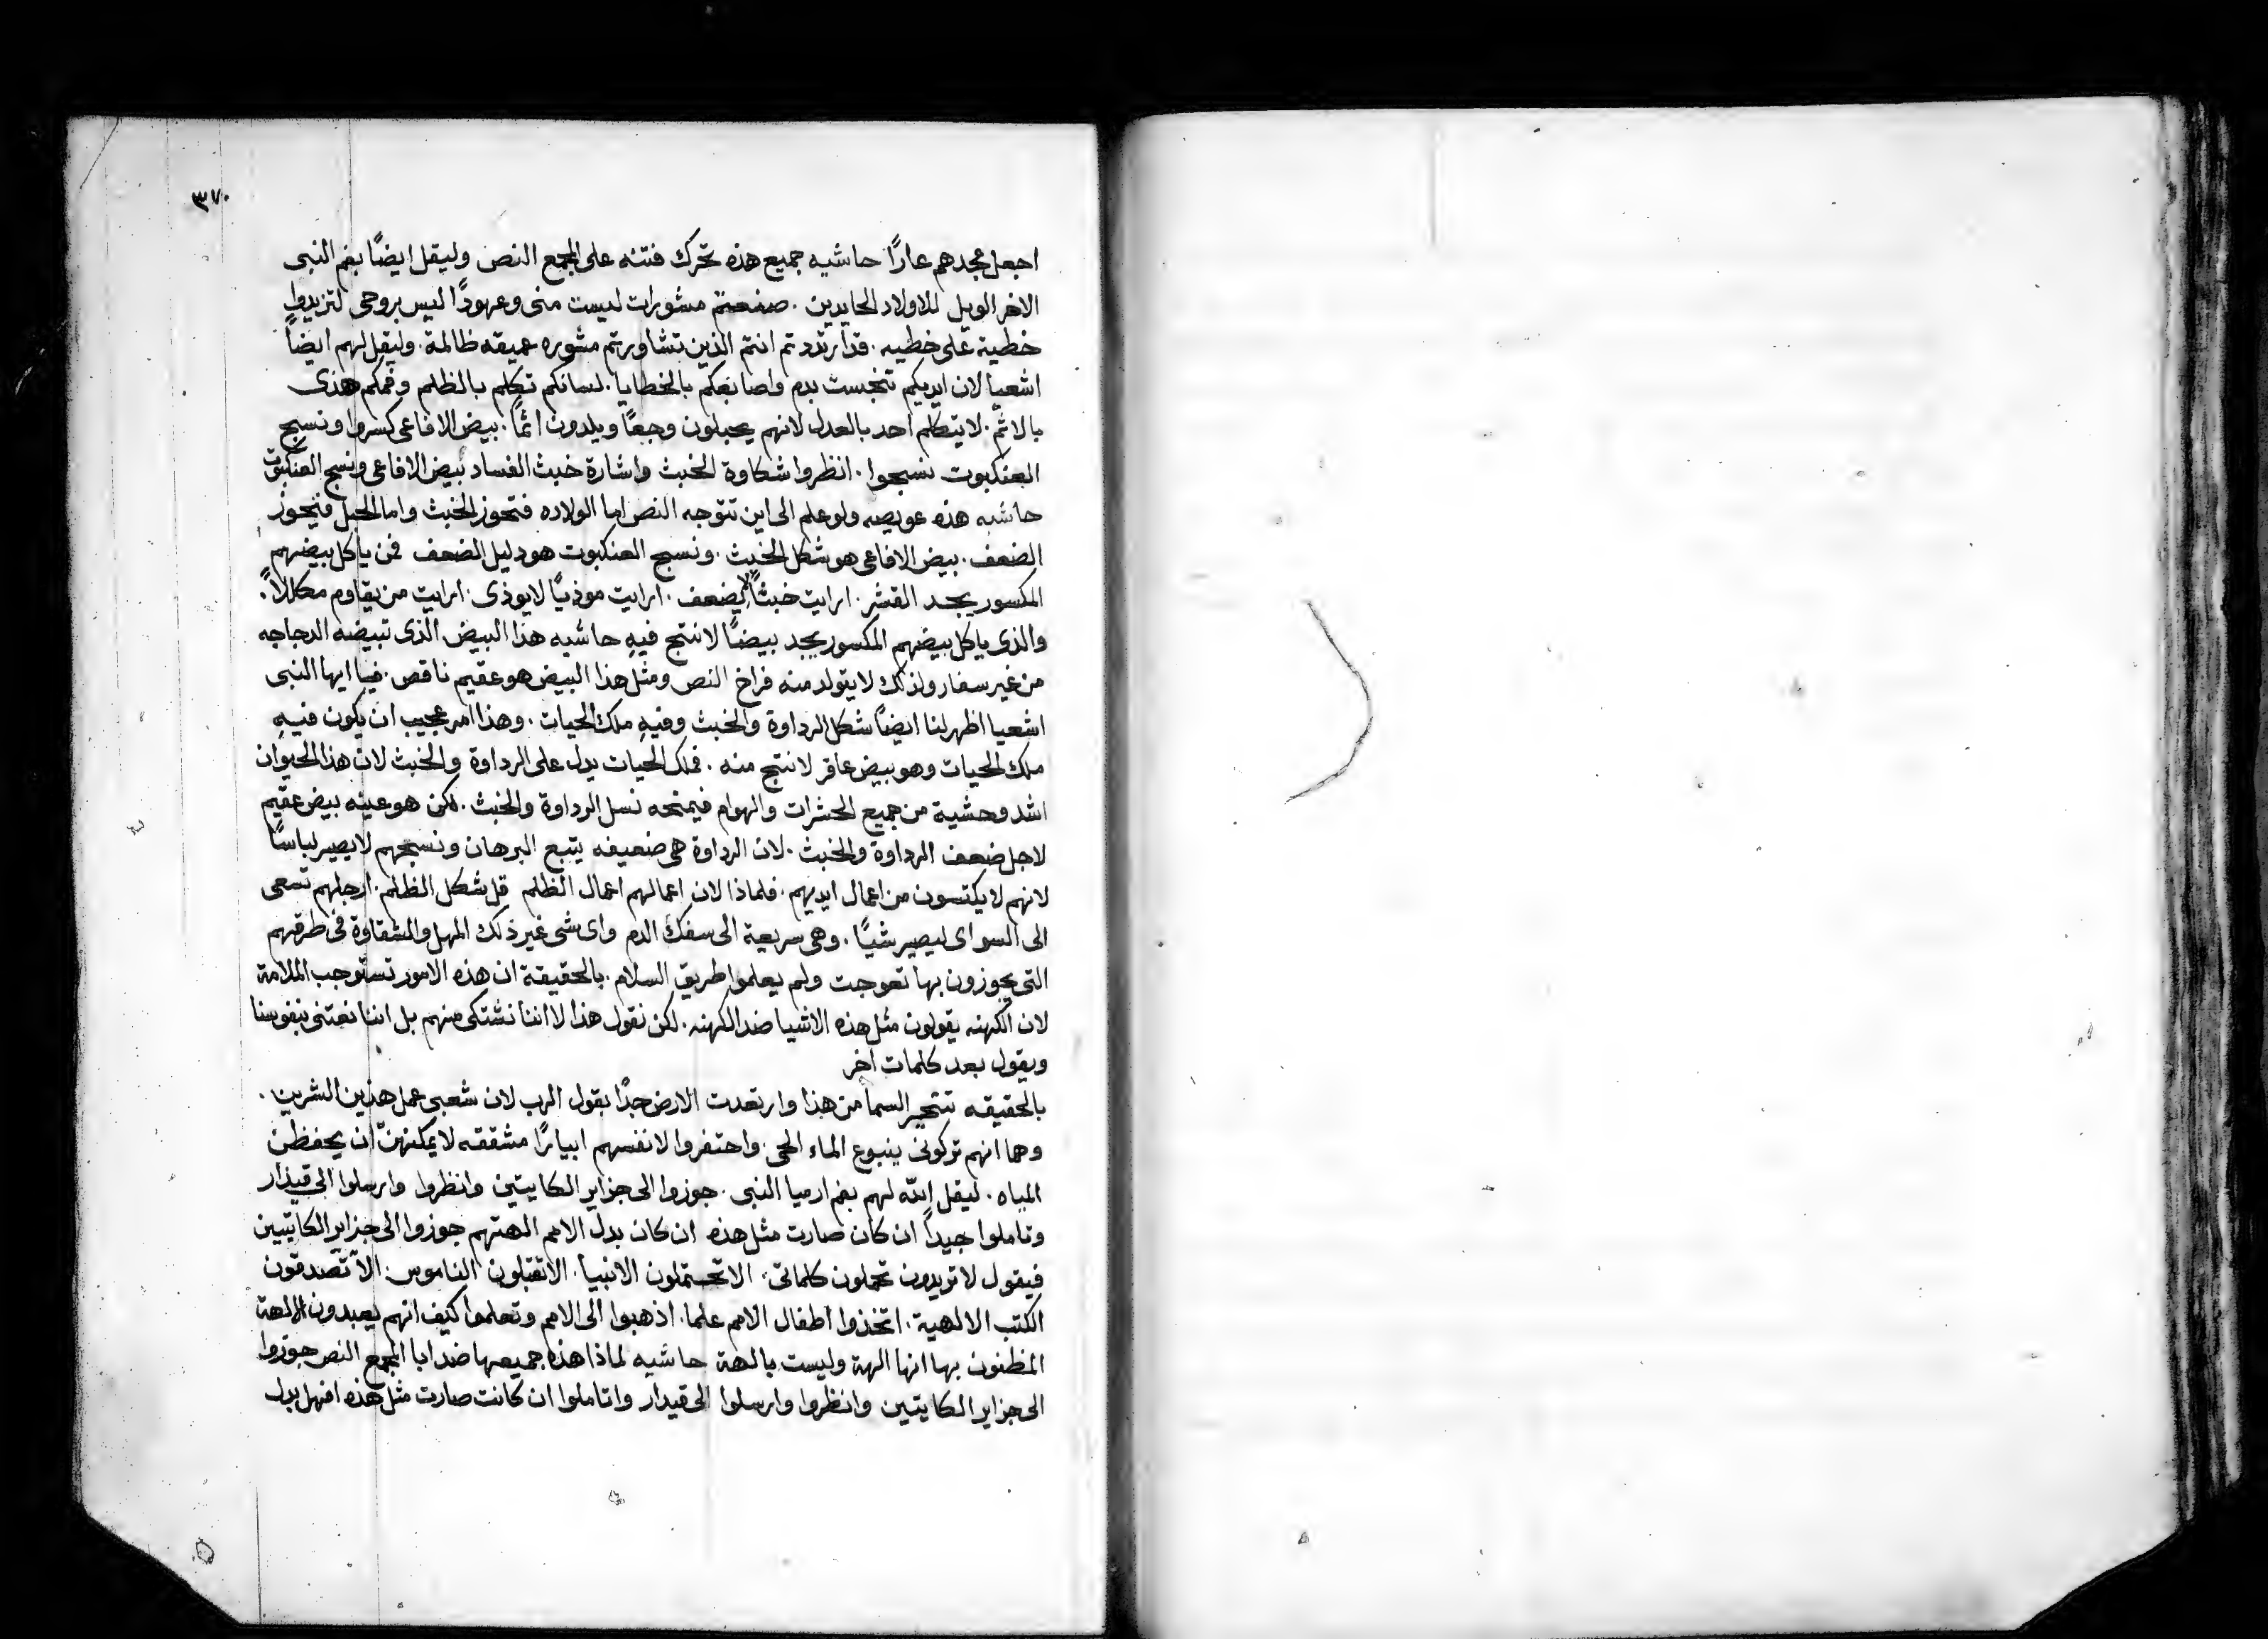 ٣٧٠
اجعل مجدهم عارًا حاشيه جميع هذه تحرك فتنه على المجمع النص وليقل ايضًا بفم النبى
الاخر الويل للاولاد الحايدين . صنعتم مشورات ليست منى وعهودًا ليس بروحى لتزيدوا
خطية على خطيه . قد ارتددتم انتم الذين تشاورتم مشوره عميقه ظالمة . وليقل لهم ايضاً
اشعيا لان ايديكم تنجست بدم واصابعكم بالخطايا . لسانكم تكلم بالظلم وفمكم هذى
بالاثم . لا يتكلم احد بالعدل لانهم يحبلون وجعًا ويلدون اثمًا . بيض الافاعى كسروا ونسيج
العنكبوت نسجوا . انظروا شكاوة الخبث واشارة خبث الفساد بيض الافاعى ونسج العنكبوت
حاشيه هذه عويصه ولو علم الى اين تتوجه النص اما الولاده فتحوز الخبث واما الحبل فيحوز
الضعف . بيض الافاعى هو شكل الخبث . ونسيج العنكبوت هو دليل الضعف فمن ياكل بيضهم
المكسور يجد القشر . ارايت خبثًا لا يضعف . ارايت موذيًا لا يوذى . ارايت من يقاوم مكللاً .
والذى ياكل بيضهم المكسور يجد بيضًا لا نتج فيهِ حاشيه هذا البيض الذى تبيضه الدجاجه
من غير سفار ولذلك لا يتولد منه فراخ النص ومثل هذا البيض هو عقيم ناقص . فيا ايها النبى
اشعيا اظهر لنا ايضاً شكل الرداوة والخبث وفيهِ ملك الحيات . وهذا امر عجيب ان يكون فيهِ
ملك الحيات وهو بيض عاقر لا نتج منه . فملك الحيات يدل على الرداوة والخبث لان هذا الحيوان
اشد وحشية من جميع الحشرات والهوام فيمنحه نسل الرداوة والخبث . لكن هو عينه بيض عقيم
لاجل ضعف الرداوة والخبث . لان الرداوة هى ضعيفه يتبع البرهان ونسجهم لا يصير لباسًا
لانهم لا يكتسون من اعمال ايديهم . فلماذا لان اعمالهم اعمال الظلم قل شكل الظلم . ارجلهم تسعى
الى السو اى ليصير شيًا . وهى سريعة الى سفك الدم واى شى غير ذلك المهل والشقاوة فى طرقهم
التى يجوزون بها تعوجت ولم يعلموا طريق السلام . بالحقيقة ان هذه الامور تستوجب الملامة
لان الكهنه يقولون مثل هذه الاشيا ضد الكهنه . لكن نقول هذا لا اننا نشتكى منهم بل اننا نعتنى بنفوسنا
ويقول بعد كلمات اخر
بالحقيقه تتحير السما من هذا وارتعدت الارض جدًا يقول الرب لان شعبى عمل هذين الشرين .
وهما انهم تركونى ينبوع الماء الحى . واحتفروا لانفسهم ابيارًا مشققه لا يمكنهنّ ان يحفظن
المياه . ليقل الله لهم بفم ارميا النبى . جوزوا الى جزاير الكايتين وانظروا وارسلوا الى قيذار
وتاملوا جيداً ان كان صارت مثل هذه ان كان بدل الامم الهتهم جوزوا الى جزاير الكاتيين
فيقول لا تريدون تحملون كلماتى . الا تحتملون الانبيا . الا تقبلون الناموس . الا تصدقون
الكتب الالهية . اتخذوا اطفال الامم علما . اذهبوا الى الامم وتعلموا كيف انهم يعبدون الالهة
المظنون بها انها الهة وليست بالهة حاشيه لماذا هذه جميعها ضد ابا المجمع النص جوزوا
الى جزاير الكايتين وانظروا وارسلوا الى قيدار واتاملوا ان كانت صارت مثل هذه افهل بدل